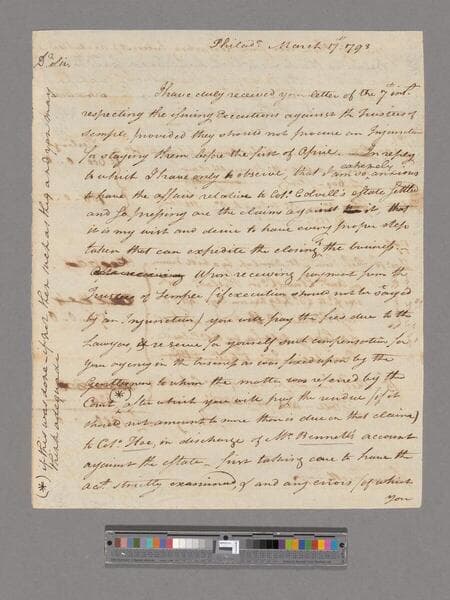 Philad.ᵃ March 17ᵗʰ 1793
Dʳ Sir,
I have duly received your letter of the 7ᵗʰ insᵗ.
respecting the issuing Executions against the Trustees of
Semple, provided they should not procure an Injunction
for staying them before the first of April. — In reply
to which I have only to observe, that I am so extremely anxious
to have the affairs relative to Colᵒ. Colvill's estate settled
and so pressing are the claims against it, that
it is my wish and desire to have every proper step
taken that can expedite the closing of the business. —
Upon receiving payment from the
Trustees of Semple (if execution should not be stayed
by an Injunction) you will pay the fees due to the
Lawyers, & reserve for yourself such compensation for
your agency in the business as was fixed upon by the
Gentlemen to whom the matter was referred by the
Court (*) after which you will pay the residue (if it
should not amount to more than is due on that claim)
to Colᵒ. Hoe, in discharge of Mʳ. Bennett's account
against the estate — first taking care to have the
accᵗ. strictly examined, & and any errors (of which
you
(*) if this was done — if not, then such as they and you may
think adequate